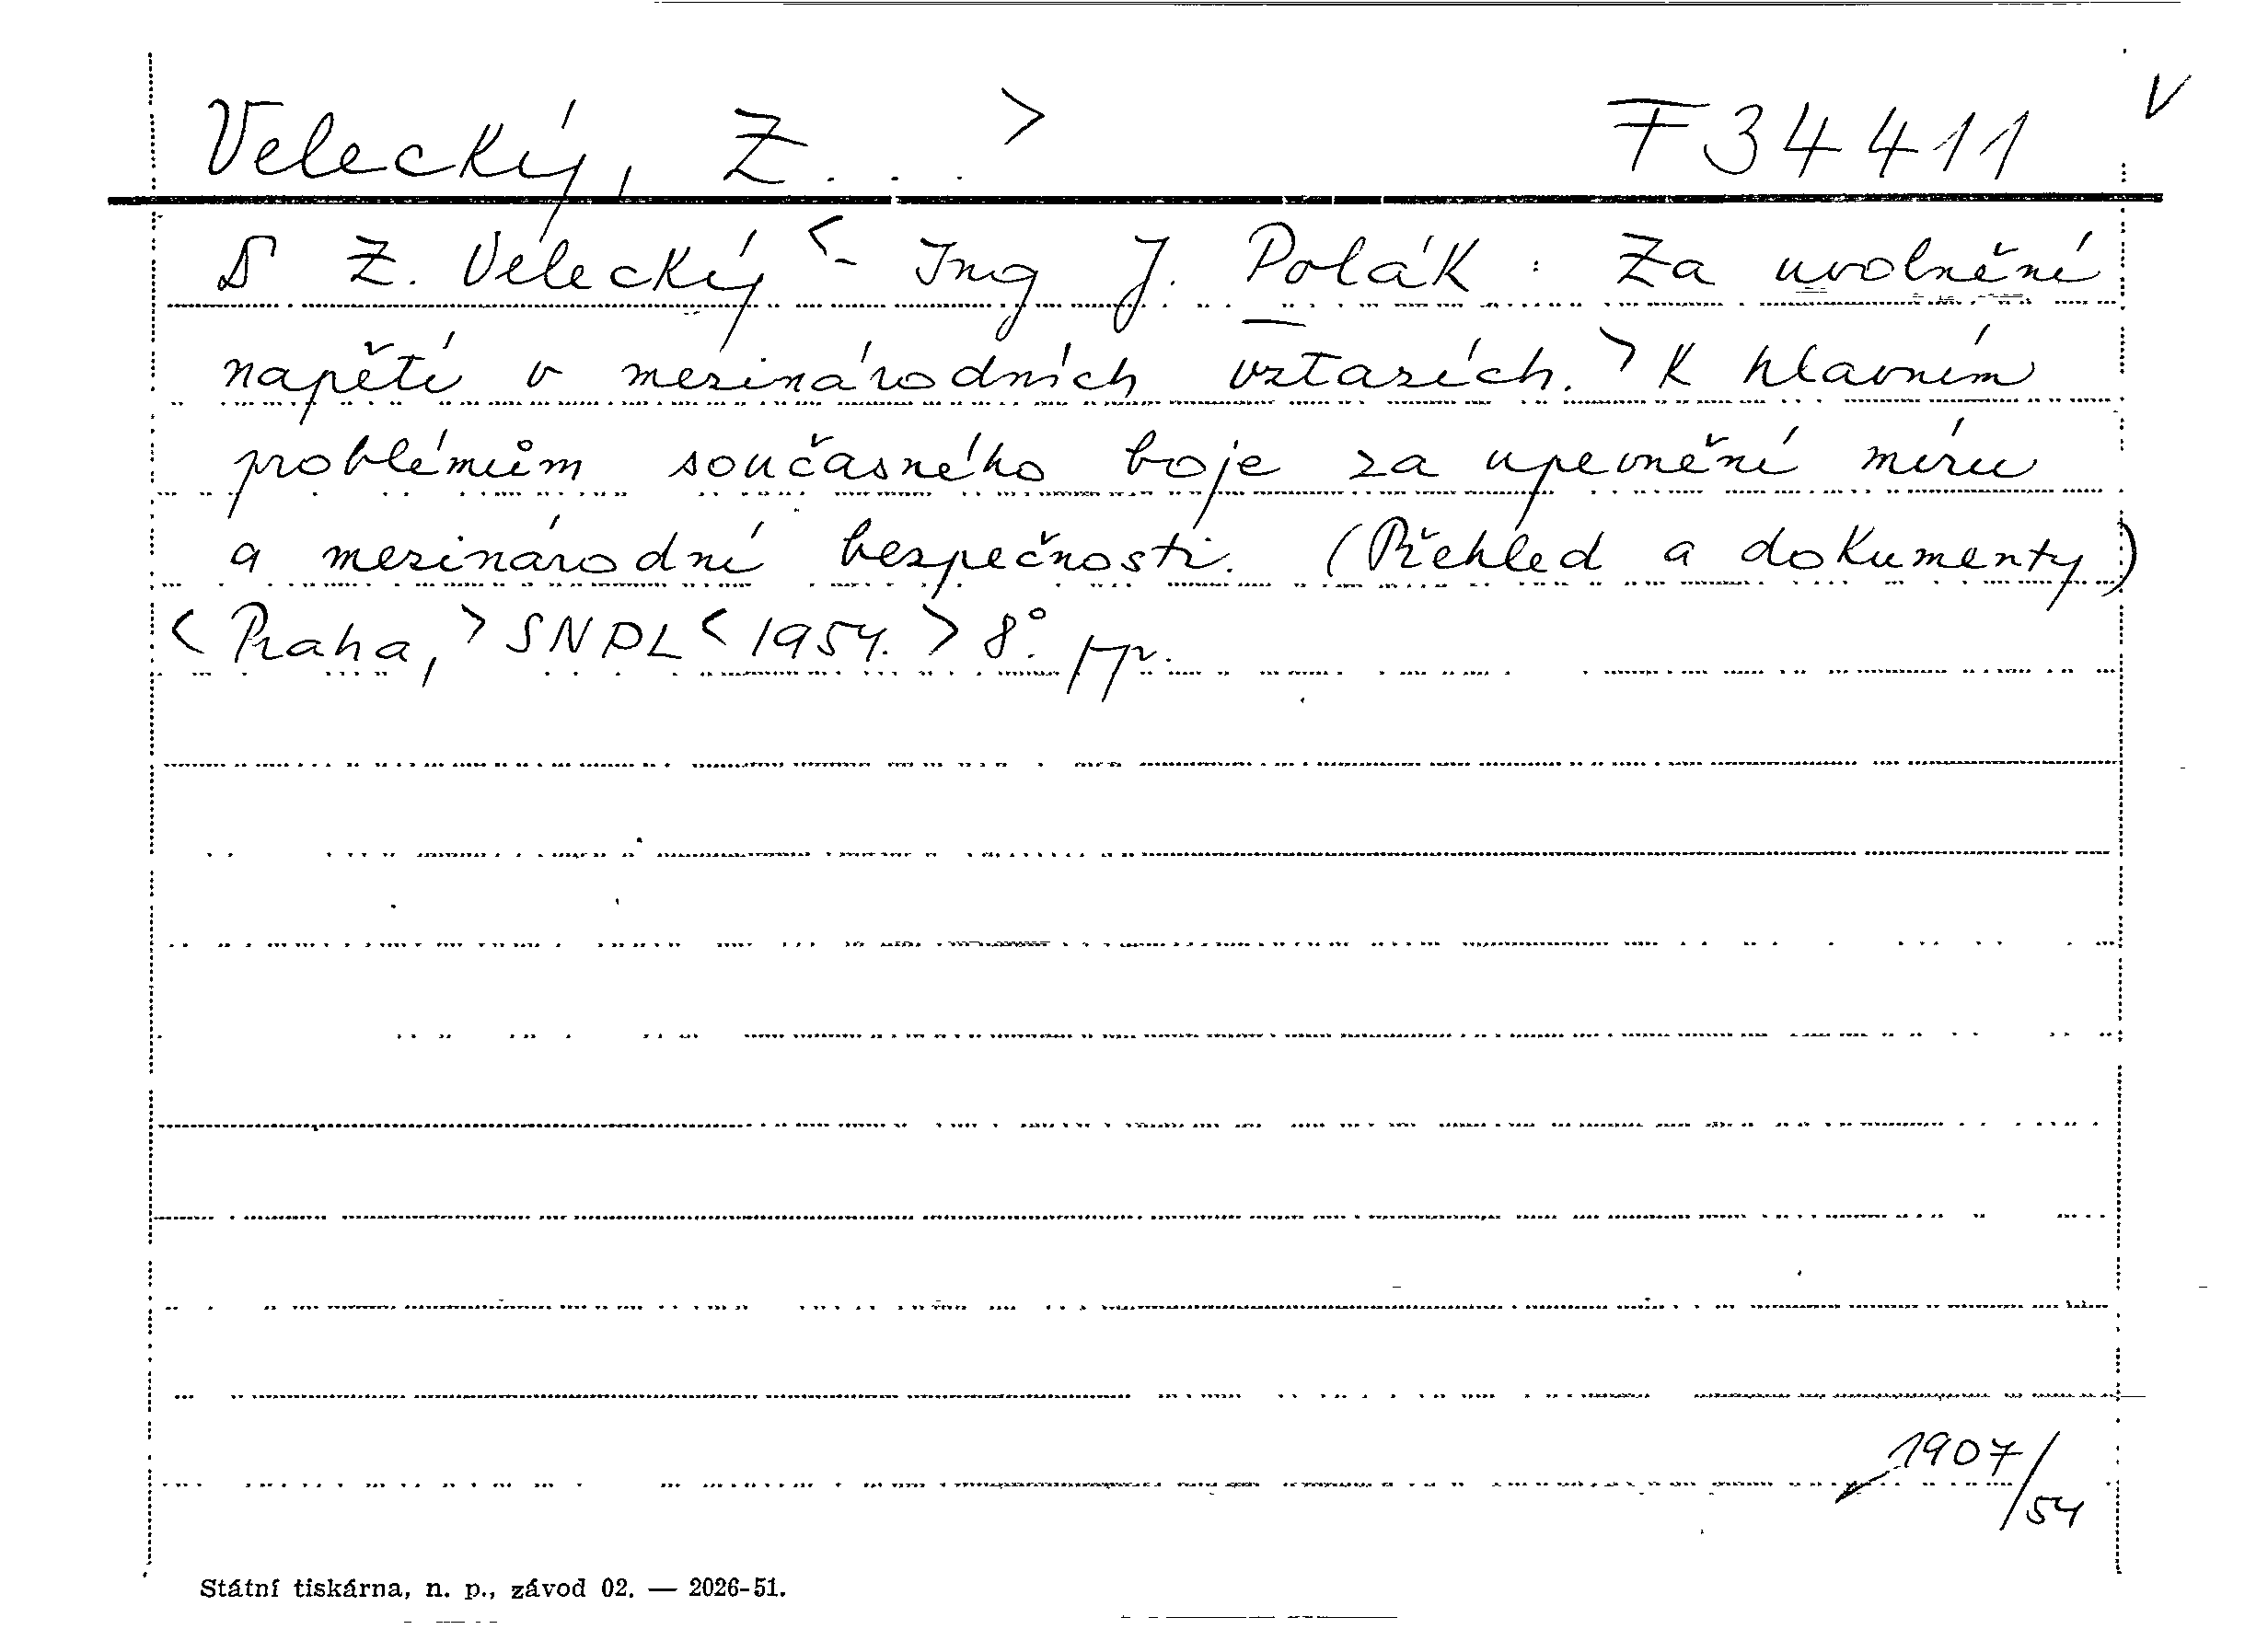 Velecký, Z... > F 34411 V
Z. Velecký <- Ing J. Polák : Za uvolnění
napětí v mezinárodních vztazích. > K hlavním
problémům současného boje za upevnění míru
a mezinárodní bezpečnosti. (Přehled a dokumenty)
< Praha, > SNPL < 1954. > 8°.
1907/54
Státní tiskárna, n. p., závod 02. — 2026-51.